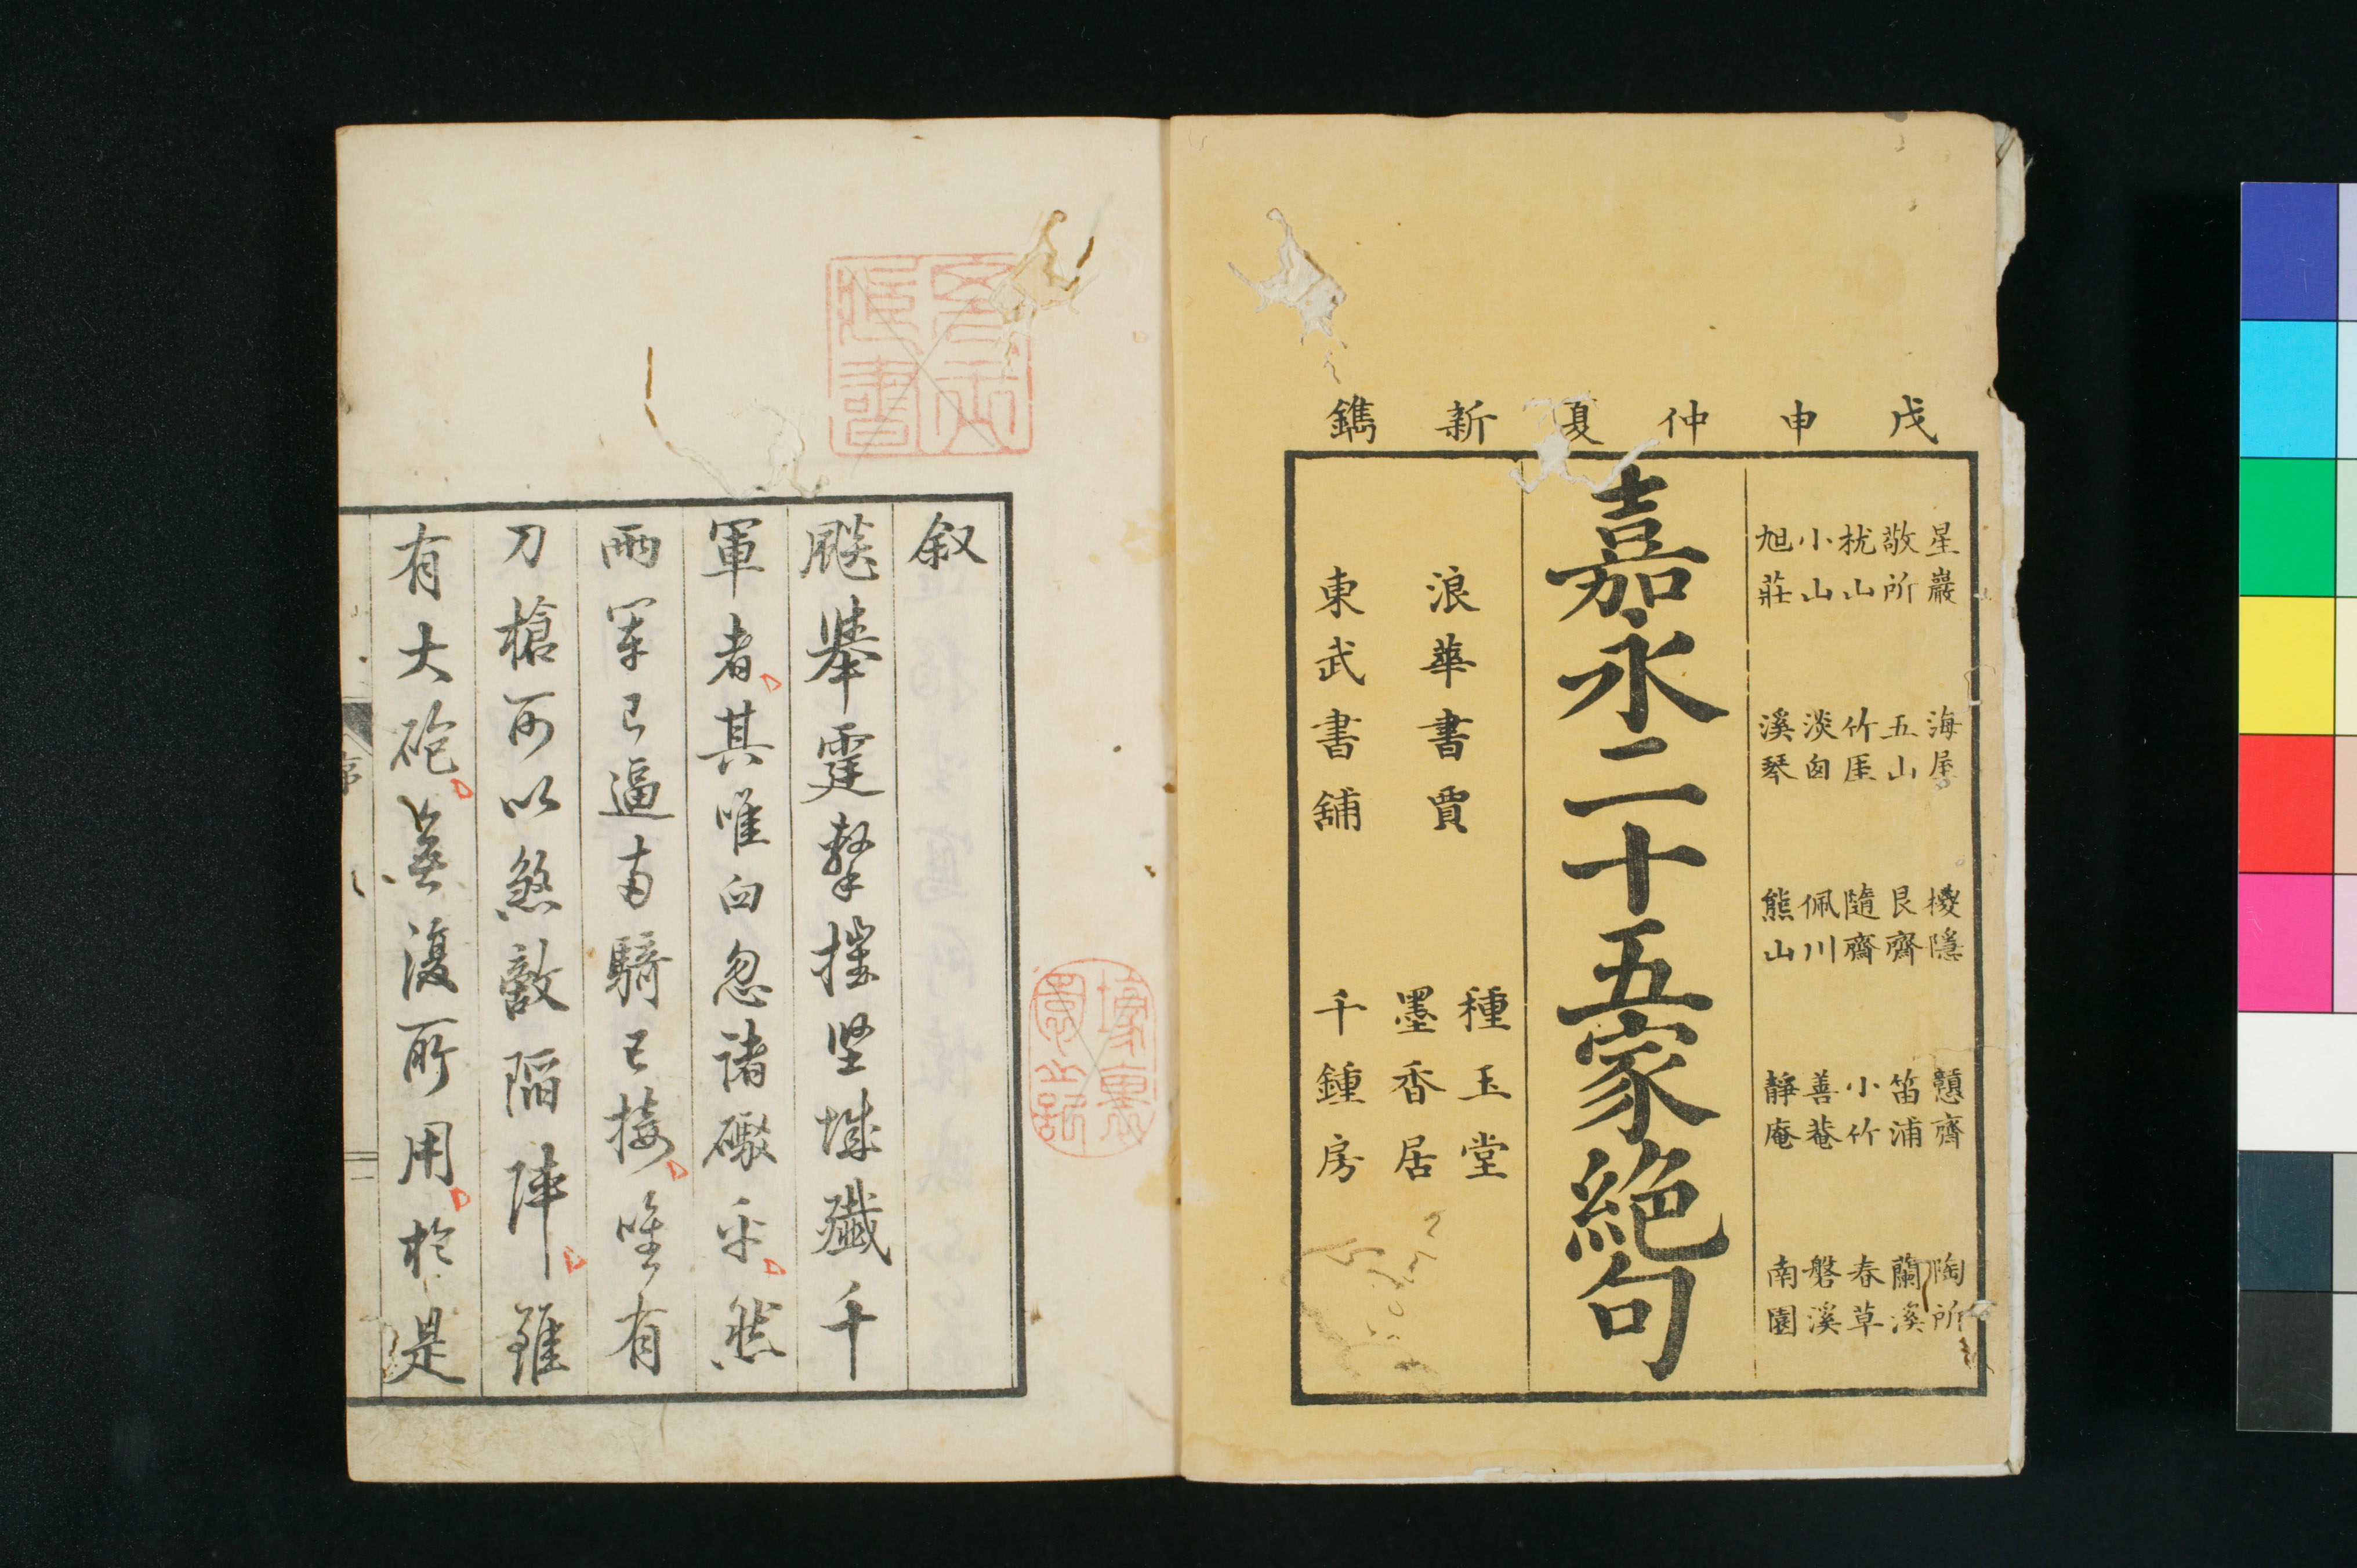 戊申仲夏新鐫
星巖 海屋 櫻隱 戇齋 陶所
敬所 五山 艮齋 笛浦 蘭溪
枕山 竹厓 隨齋 小竹 春草
小山 淡囱 佩川 善菴 磐溪
旭莊 溪琴 熊山 靜庵 南園
嘉永二十五家絕句
浪華書賈 種玉堂
墨香居
東武書舖 千鍾房
叙
飚舉霆擊摧坚城殲千
軍者其唯白忽諸礮乎然
兩軍已逼两騎已接唯有
刀槍可以煞敵陷陣雖
有大砲無復所用於是